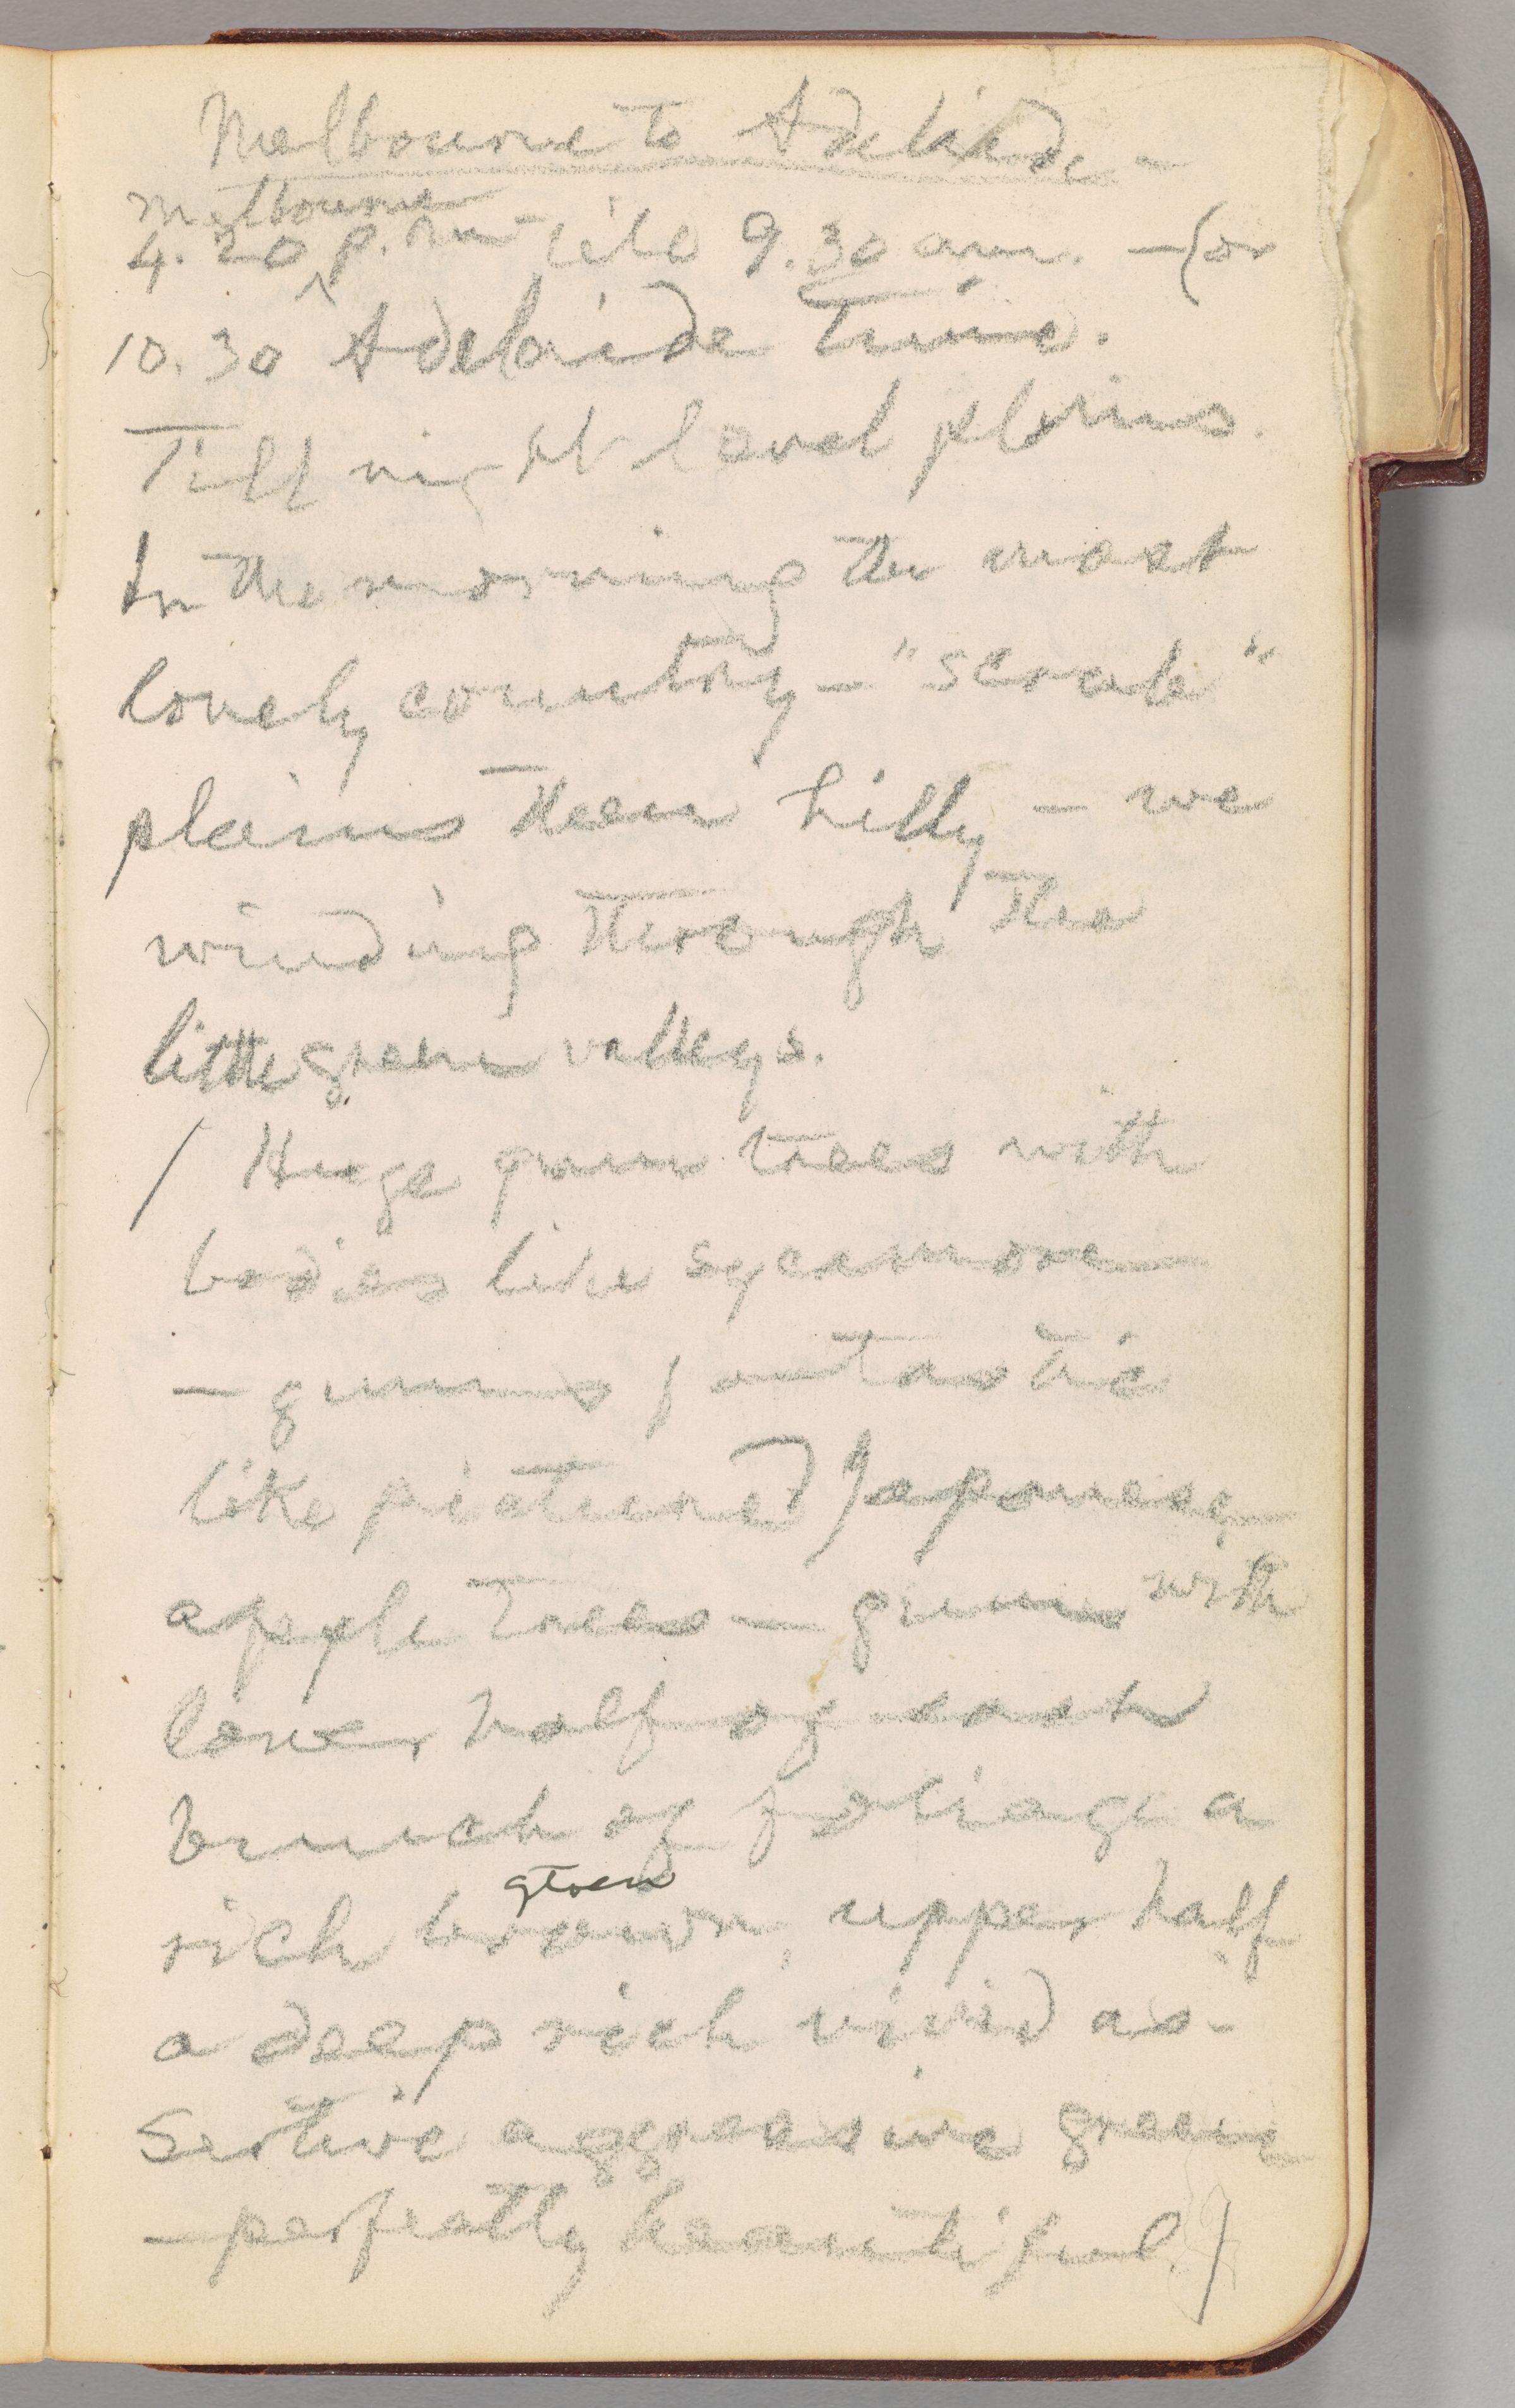 Melbourne to Adelaide –
Melbourne
4.20 p.m. till 9.30 am. – (or
10.30 Adelaide time.
Till night level plains.
In the morning the most
lovely country – "scrub"
plains then hilly – we
winding through the
little green valleys.
/ Huge gum trees with
bodies like sycamore –
– gums fantastic
like pictured Japanese
apple trees – gums with
lower half of each
bunch of foliage a
green
rich brown, upper half
a deep rich vivid as-
sertive aggressive green
– perfectly beautiful. /